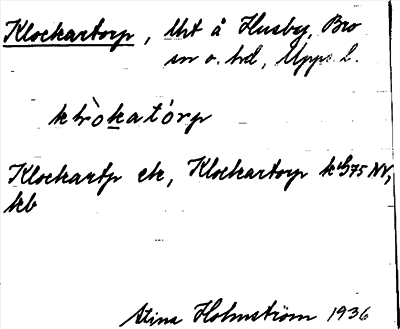 Klockartorp, lht å Husby, Bro
sn o. hd, Upps. l.
klòkatórp
Klockartp ek, Klockartorp kbl 75 NV,
kb
Stina Holmström 1936